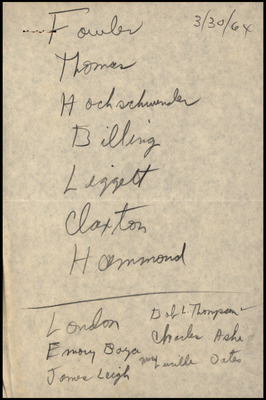 3/30/64
Fowler
Thomas
Hochschwender
Billing
Leggett
Claxton
Hammond
London
Bob L. Thompson
Emory
Charles Ashe
James Leigh
Mrs Lucille Oates